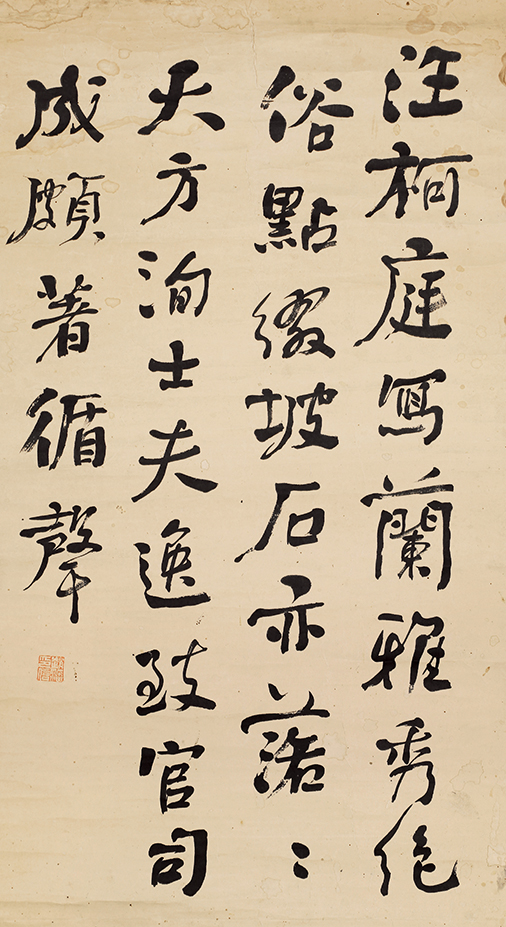 汪柯庭寫蘭雅秀絕
俗點綴坡石亦落〻
大方洵士夫逸致官司
成頗著循聲